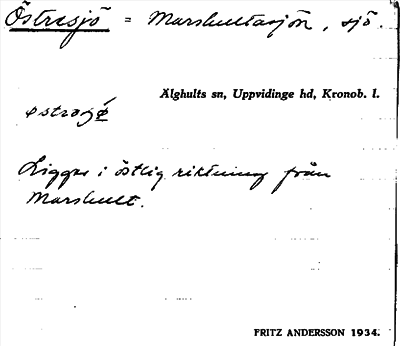 Östrasjö = Marshultasjön, sjö.
Älghults sn, Uppvidinge hd, Kronob. l.
Ligger i östlig riktning från
Marshult.
FRITZ ANDERSSON 1934.